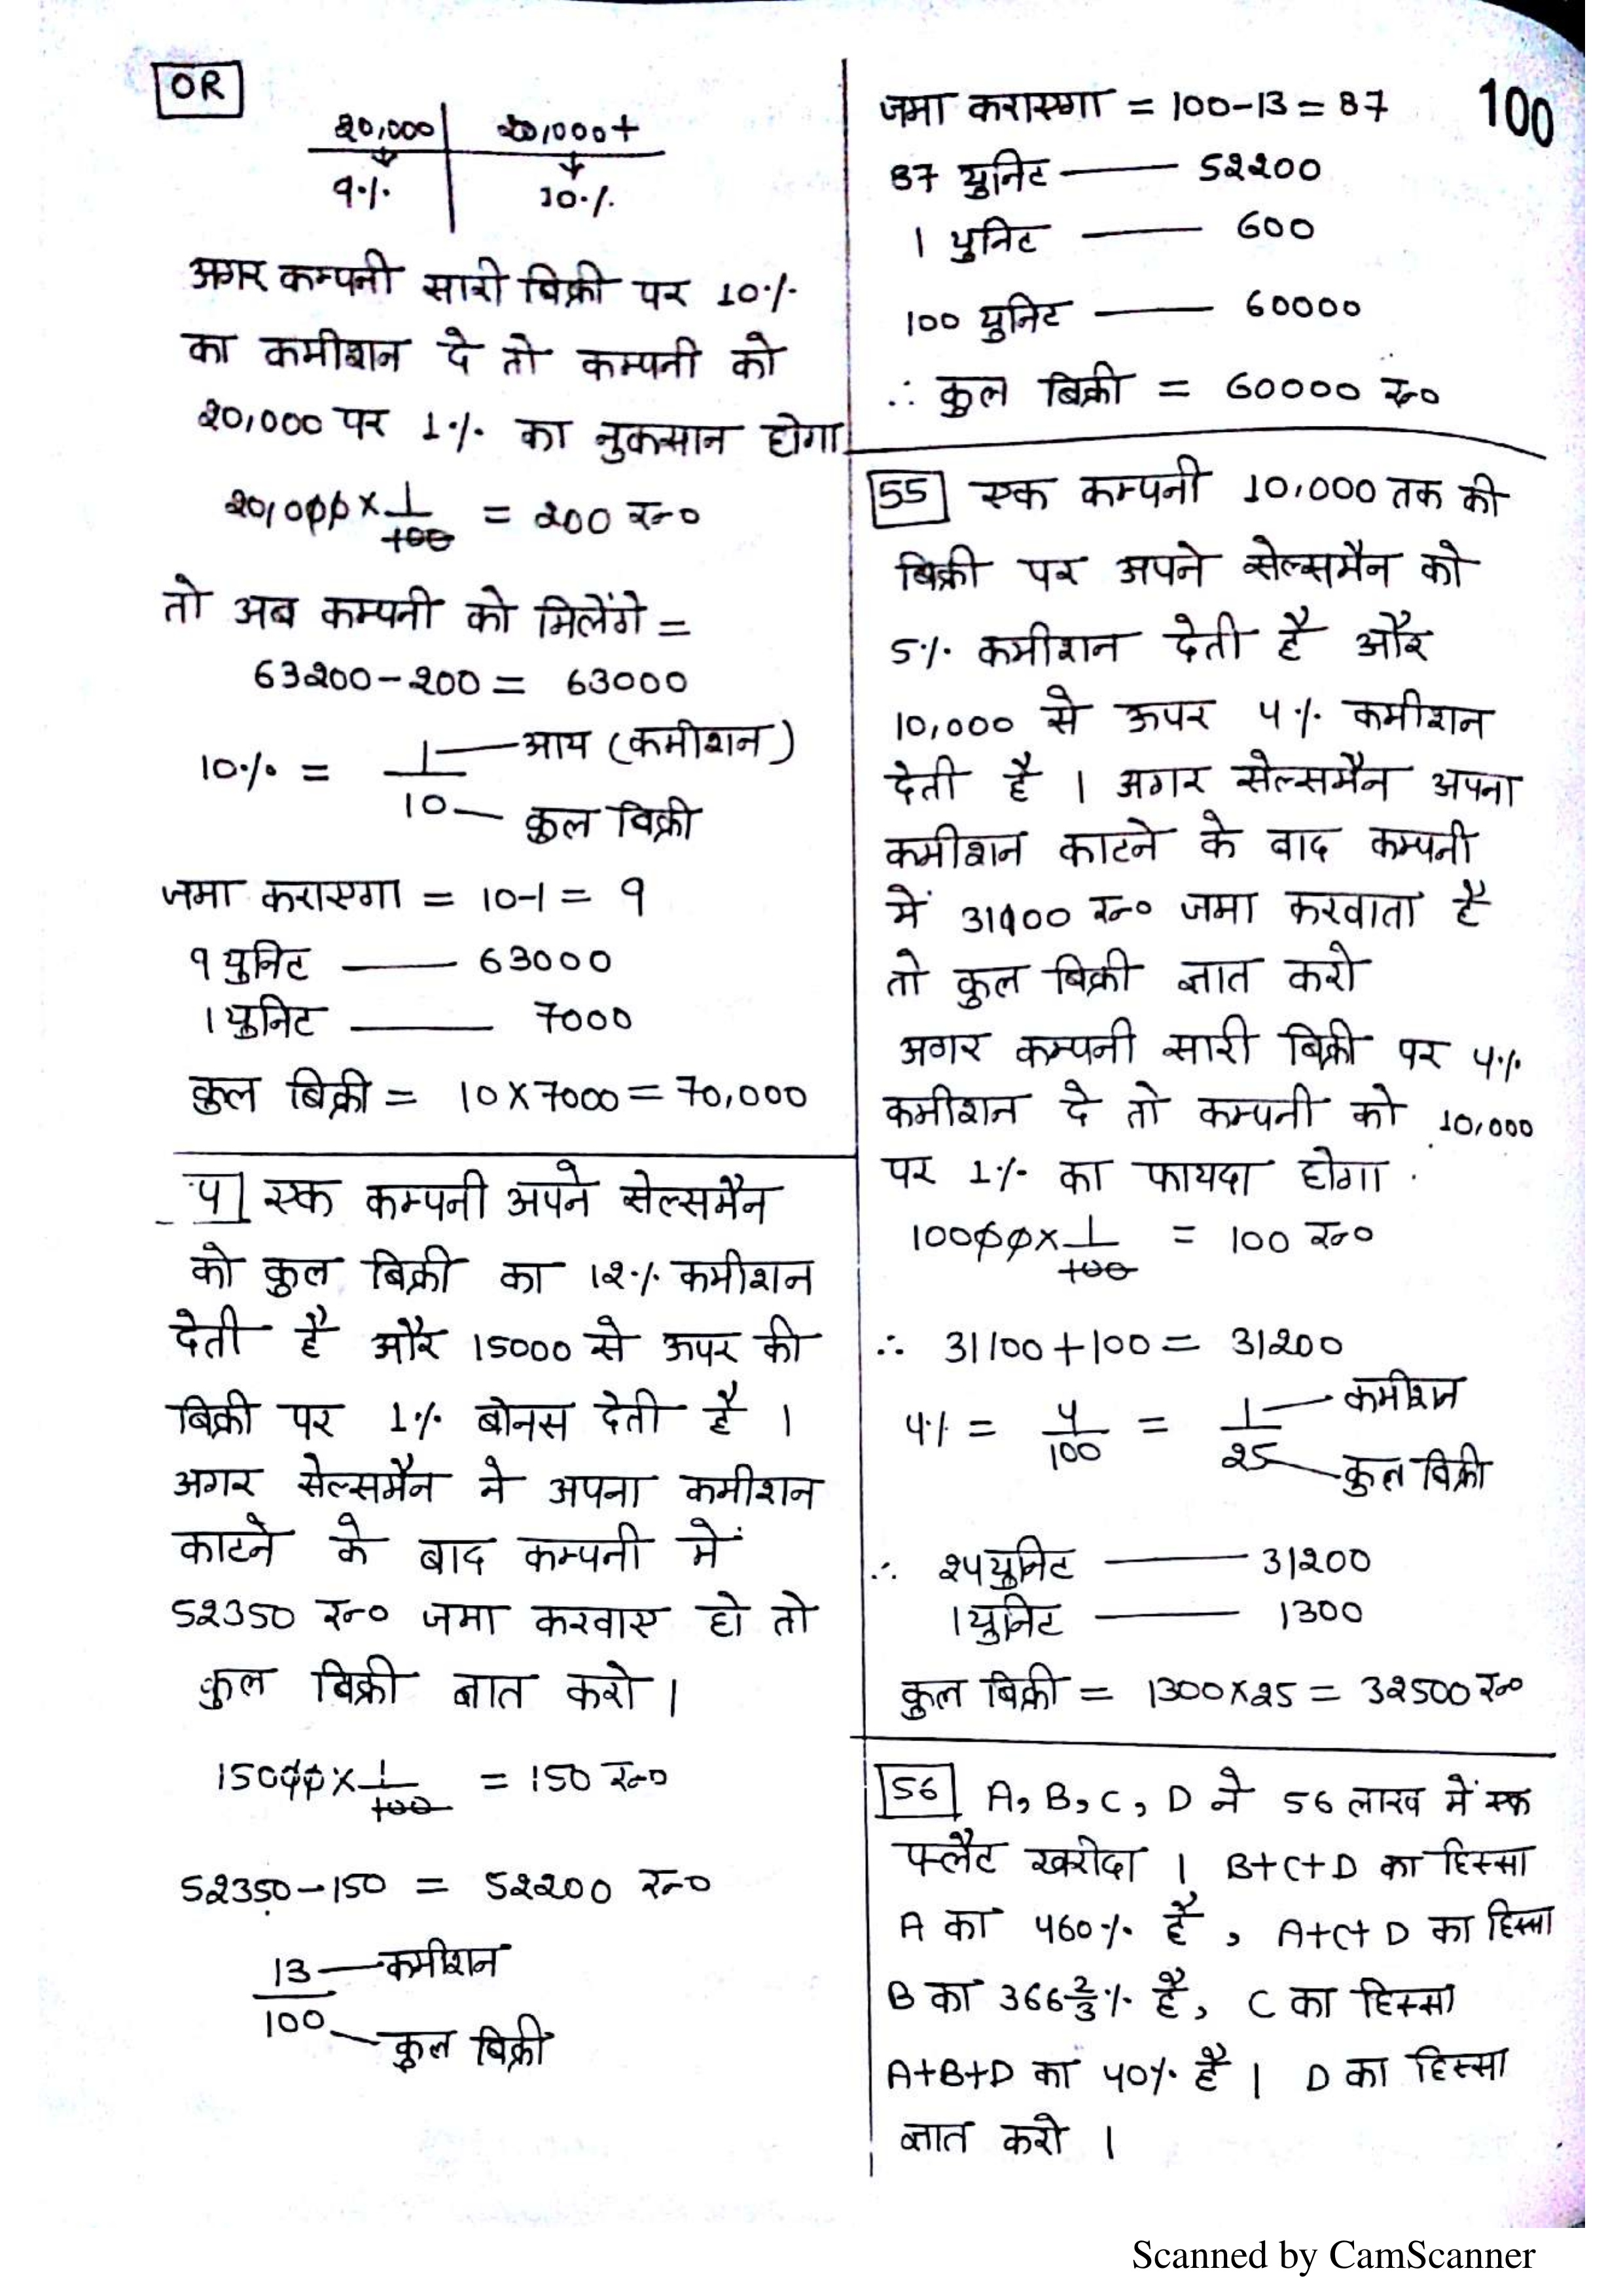 OR
20,000 20,000+
9% 10%
अगर कम्पनी सारी बिक्री पर 10%
का कमीशन दे तो कम्पनी को
20,000 पर 1% का नुकसान होगा
20,000 × 1/100 = 200 रू०
तो अब कम्पनी को मिलेंगे =
63200 - 200 = 63000
10% = 1/10
आय (कमीशन)
कुल बिक्री
जमा कराएगा = 10-1 = 9
9 युनिट — 63000
1 युनिट — 7000
कुल बिक्री = 10 × 7000 = 70,000
एक कम्पनी अपने सेल्समैन
को कुल बिक्री का 12% कमीशन
देती है और 15000 से ऊपर की
बिक्री पर 1% बोनस देती है ।
अगर सेल्समैन ने अपना कमीशन
काटने के बाद कम्पनी में
52350 रू० जमा करवाए हो तो
कुल बिक्री ज्ञात करो ।
15000 × 1/100 = 150 रू०
52350 - 150 = 52200 रू०
13/100
कमीशन
कुल बिक्री
100
जमा कराएगा = 100-13 = 87
87 युनिट — 52200
1 युनिट — 600
100 युनिट — 60000
∴ कुल बिक्री = 60000 रू०
55 एक कम्पनी 10,000 तक की
बिक्री पर अपने सेल्समैन को
5% कमीशन देती है और
10,000 से ऊपर 4% कमीशन
देती है । अगर सेल्समैन अपना
कमीशन काटने के बाद कम्पनी
में 31100 रू० जमा करवाता है
तो कुल बिक्री ज्ञात करो
अगर कम्पनी सारी बिक्री पर 4%
कमीशन दे तो कम्पनी को 10,000
पर 1% का फायदा होगा .
10000 × 1/100 = 100 रू०
∴ 31100 + 100 = 31200
4% = 4/100 = 1/25
कमीशन
कुल बिक्री
∴ 24 युनिट — 31200
1 युनिट — 1300
कुल बिक्री = 1300 × 25 = 32500 रू०
56 A, B, C, D ने 56 लाख में एक
फ्लैट खरीदा । B+C+D का हिस्सा
A का 460% है , A+C+D का हिस्सा
B का 366 2/3% है, C का हिस्सा
A+B+D का 40% है । D का हिस्सा
ज्ञात करो ।
Scanned by CamScanner